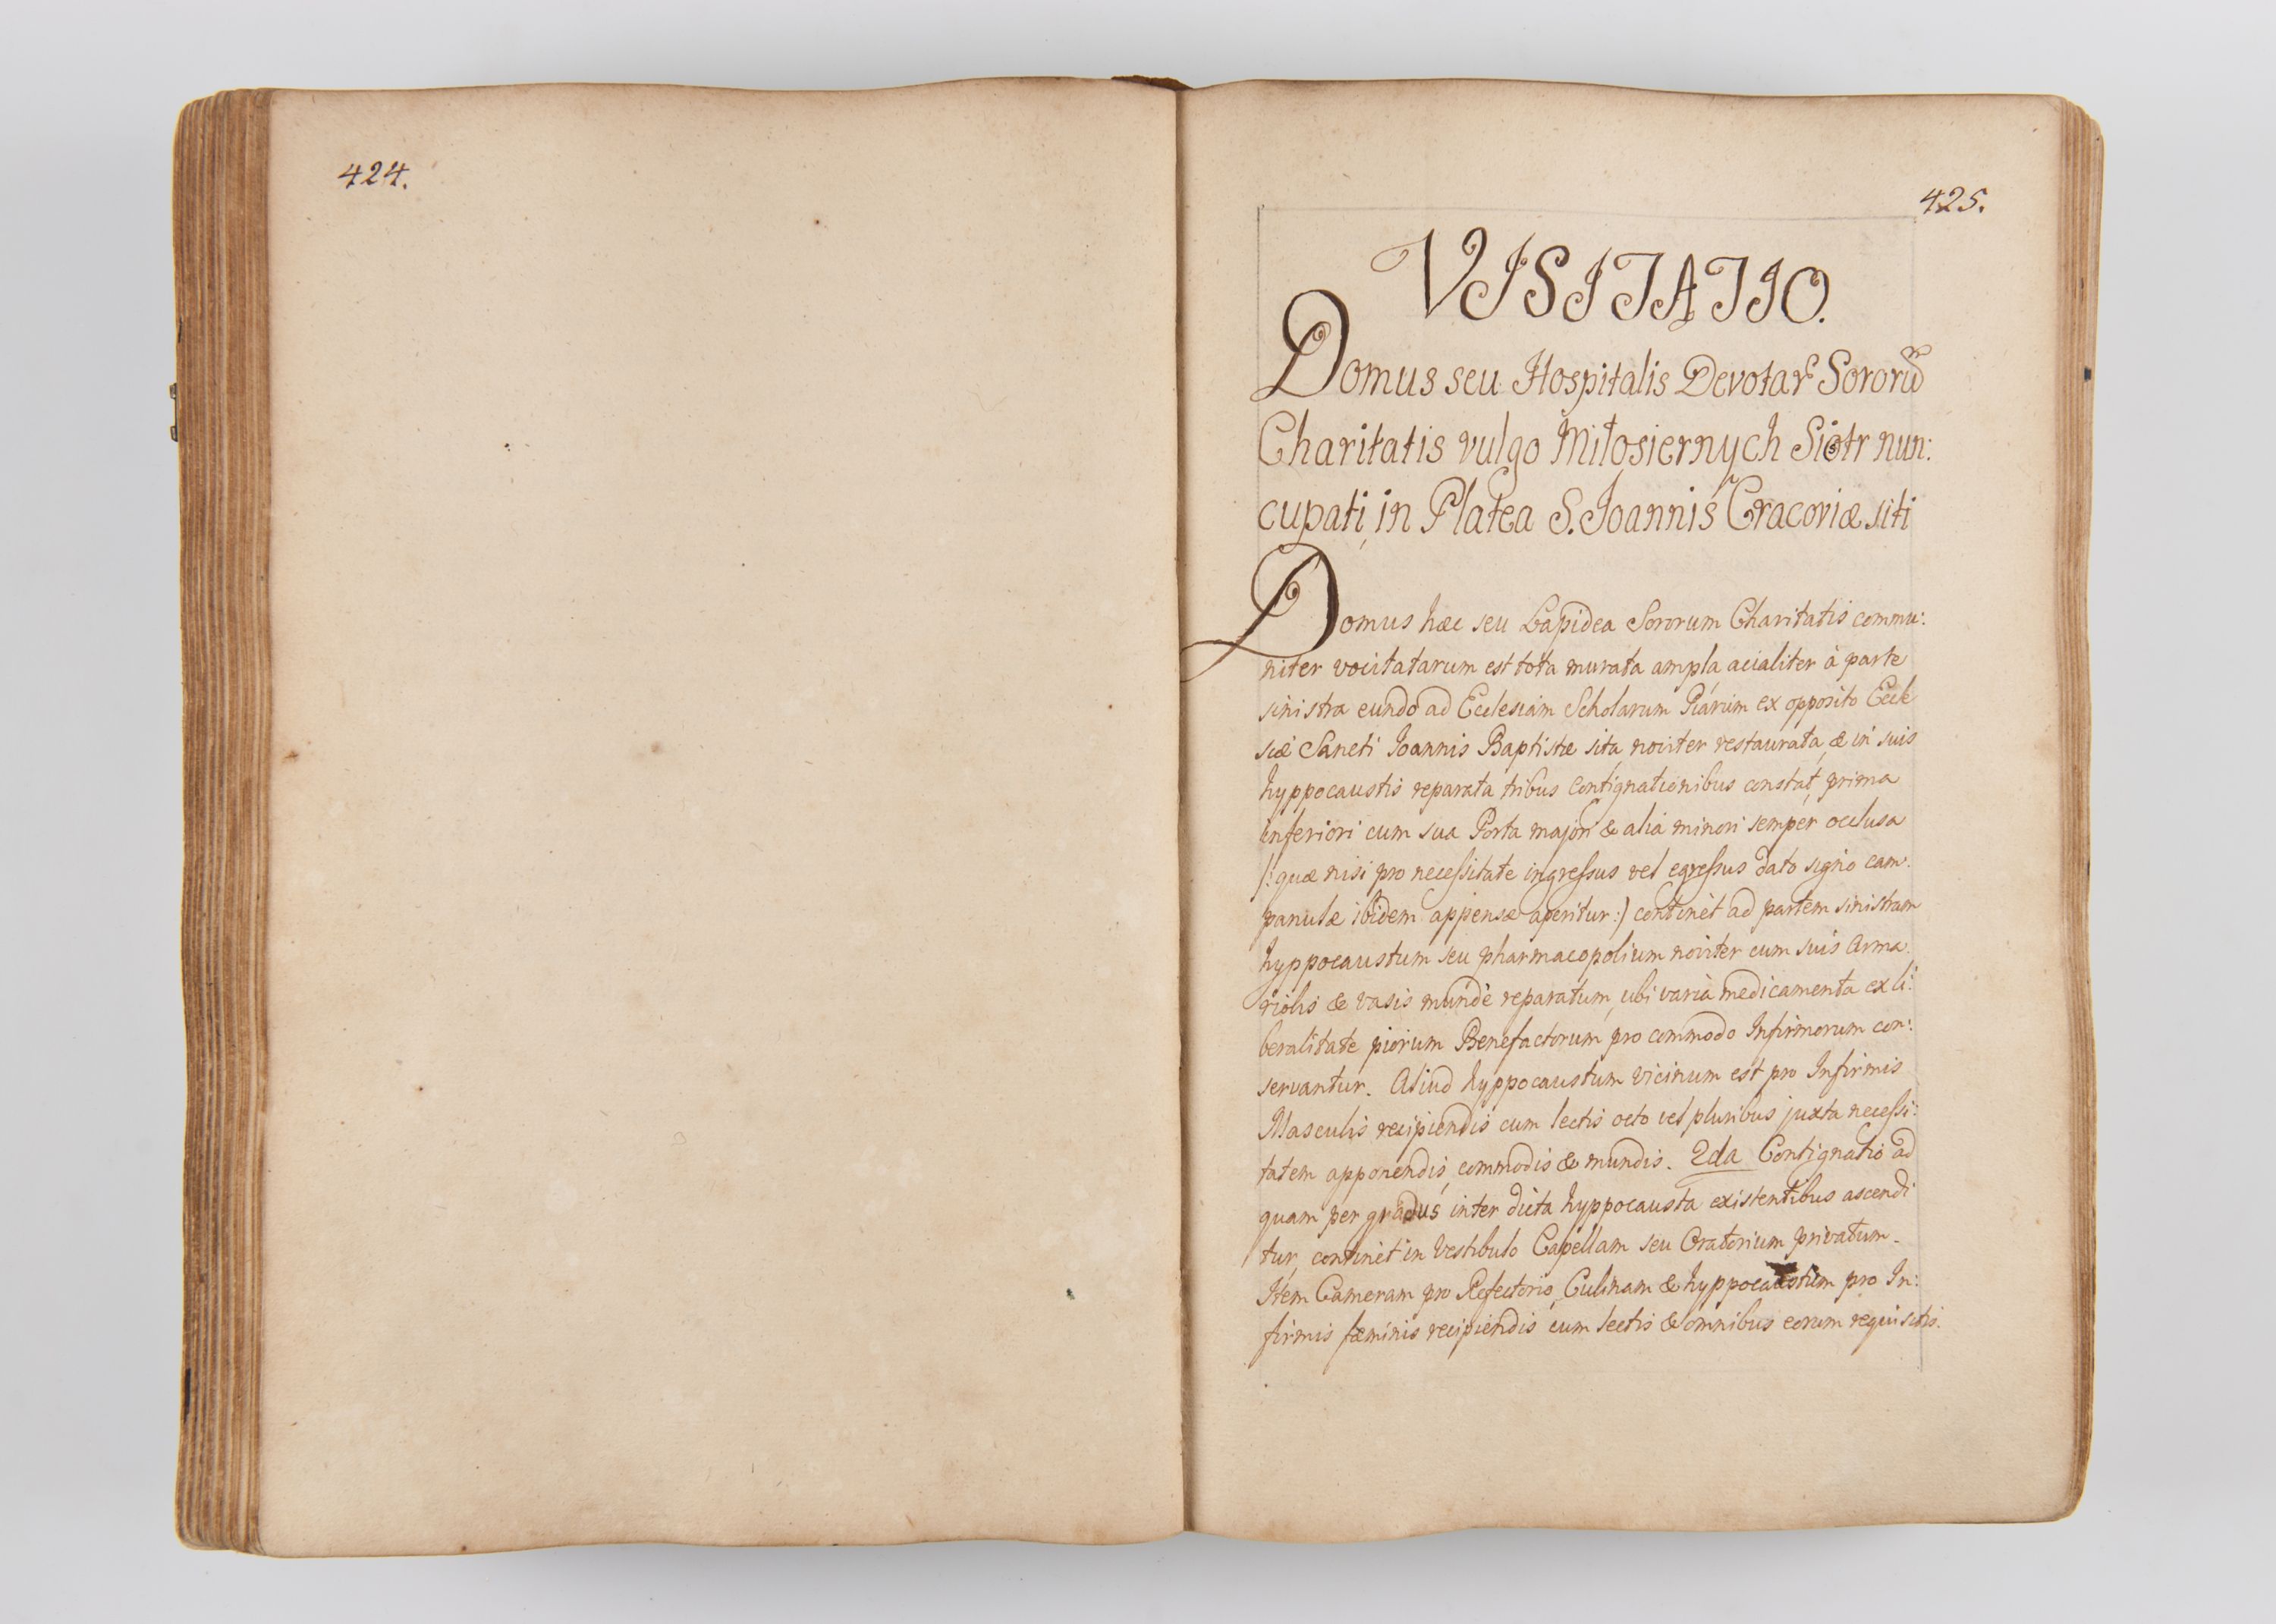 424.
425.
VISITATIO.
Domus seu Hospitalis Devotar Sororū
Charitatis vulgo Miłosiernych Siotr nun:
cupati, in Platea S. Joannis Cracoviæ siti
Domus hæc seu Lapidea Sororum Charitatis commu:
niter vocitatarum est tota murata ampla, acialiter à parte
sinistra eundo ad Ecclesiam Scholarum Piarum ex opposito Eccle
siæ Sancti Joannis Baptistæ sita noviter restaurata, & in suis
hyppocaustis reparata tribus contignationibus constat, prima
inferiori cum sua Porta majori & alia minori semper occlusa
/: quæ nisi pro necessitate ingressus vel egressus dato signo cam:
panulæ ibidem appensæ aperitur :/ continet ad partem sinistram
hyppocaustum seu pharmacopolium noviter cum suis arma:
riolis & vasis mundè reparatum, ubi varia medicamenta ex li:
beralitate piorum Benefactorum pro commodo Infirmorum con:
servantur. Aliud hyppocaustum vicinum est pro Infirmis
Masculis recipiendis cum lectis octo vel pluribus juxta necessi:
tatem apponendis, commodis & mundis. 2da Contignatio ad
quam per gradus inter dicta hyppocausta existentibus ascendi
tur, continet in Vestibulo Capellam seu Oratorium privatum.
Item Cameram pro Refectorio, Culinam & hyppocaustum pro In:
firmis fæminis recipiendis cum lectis & omnibus eorum requisitis.